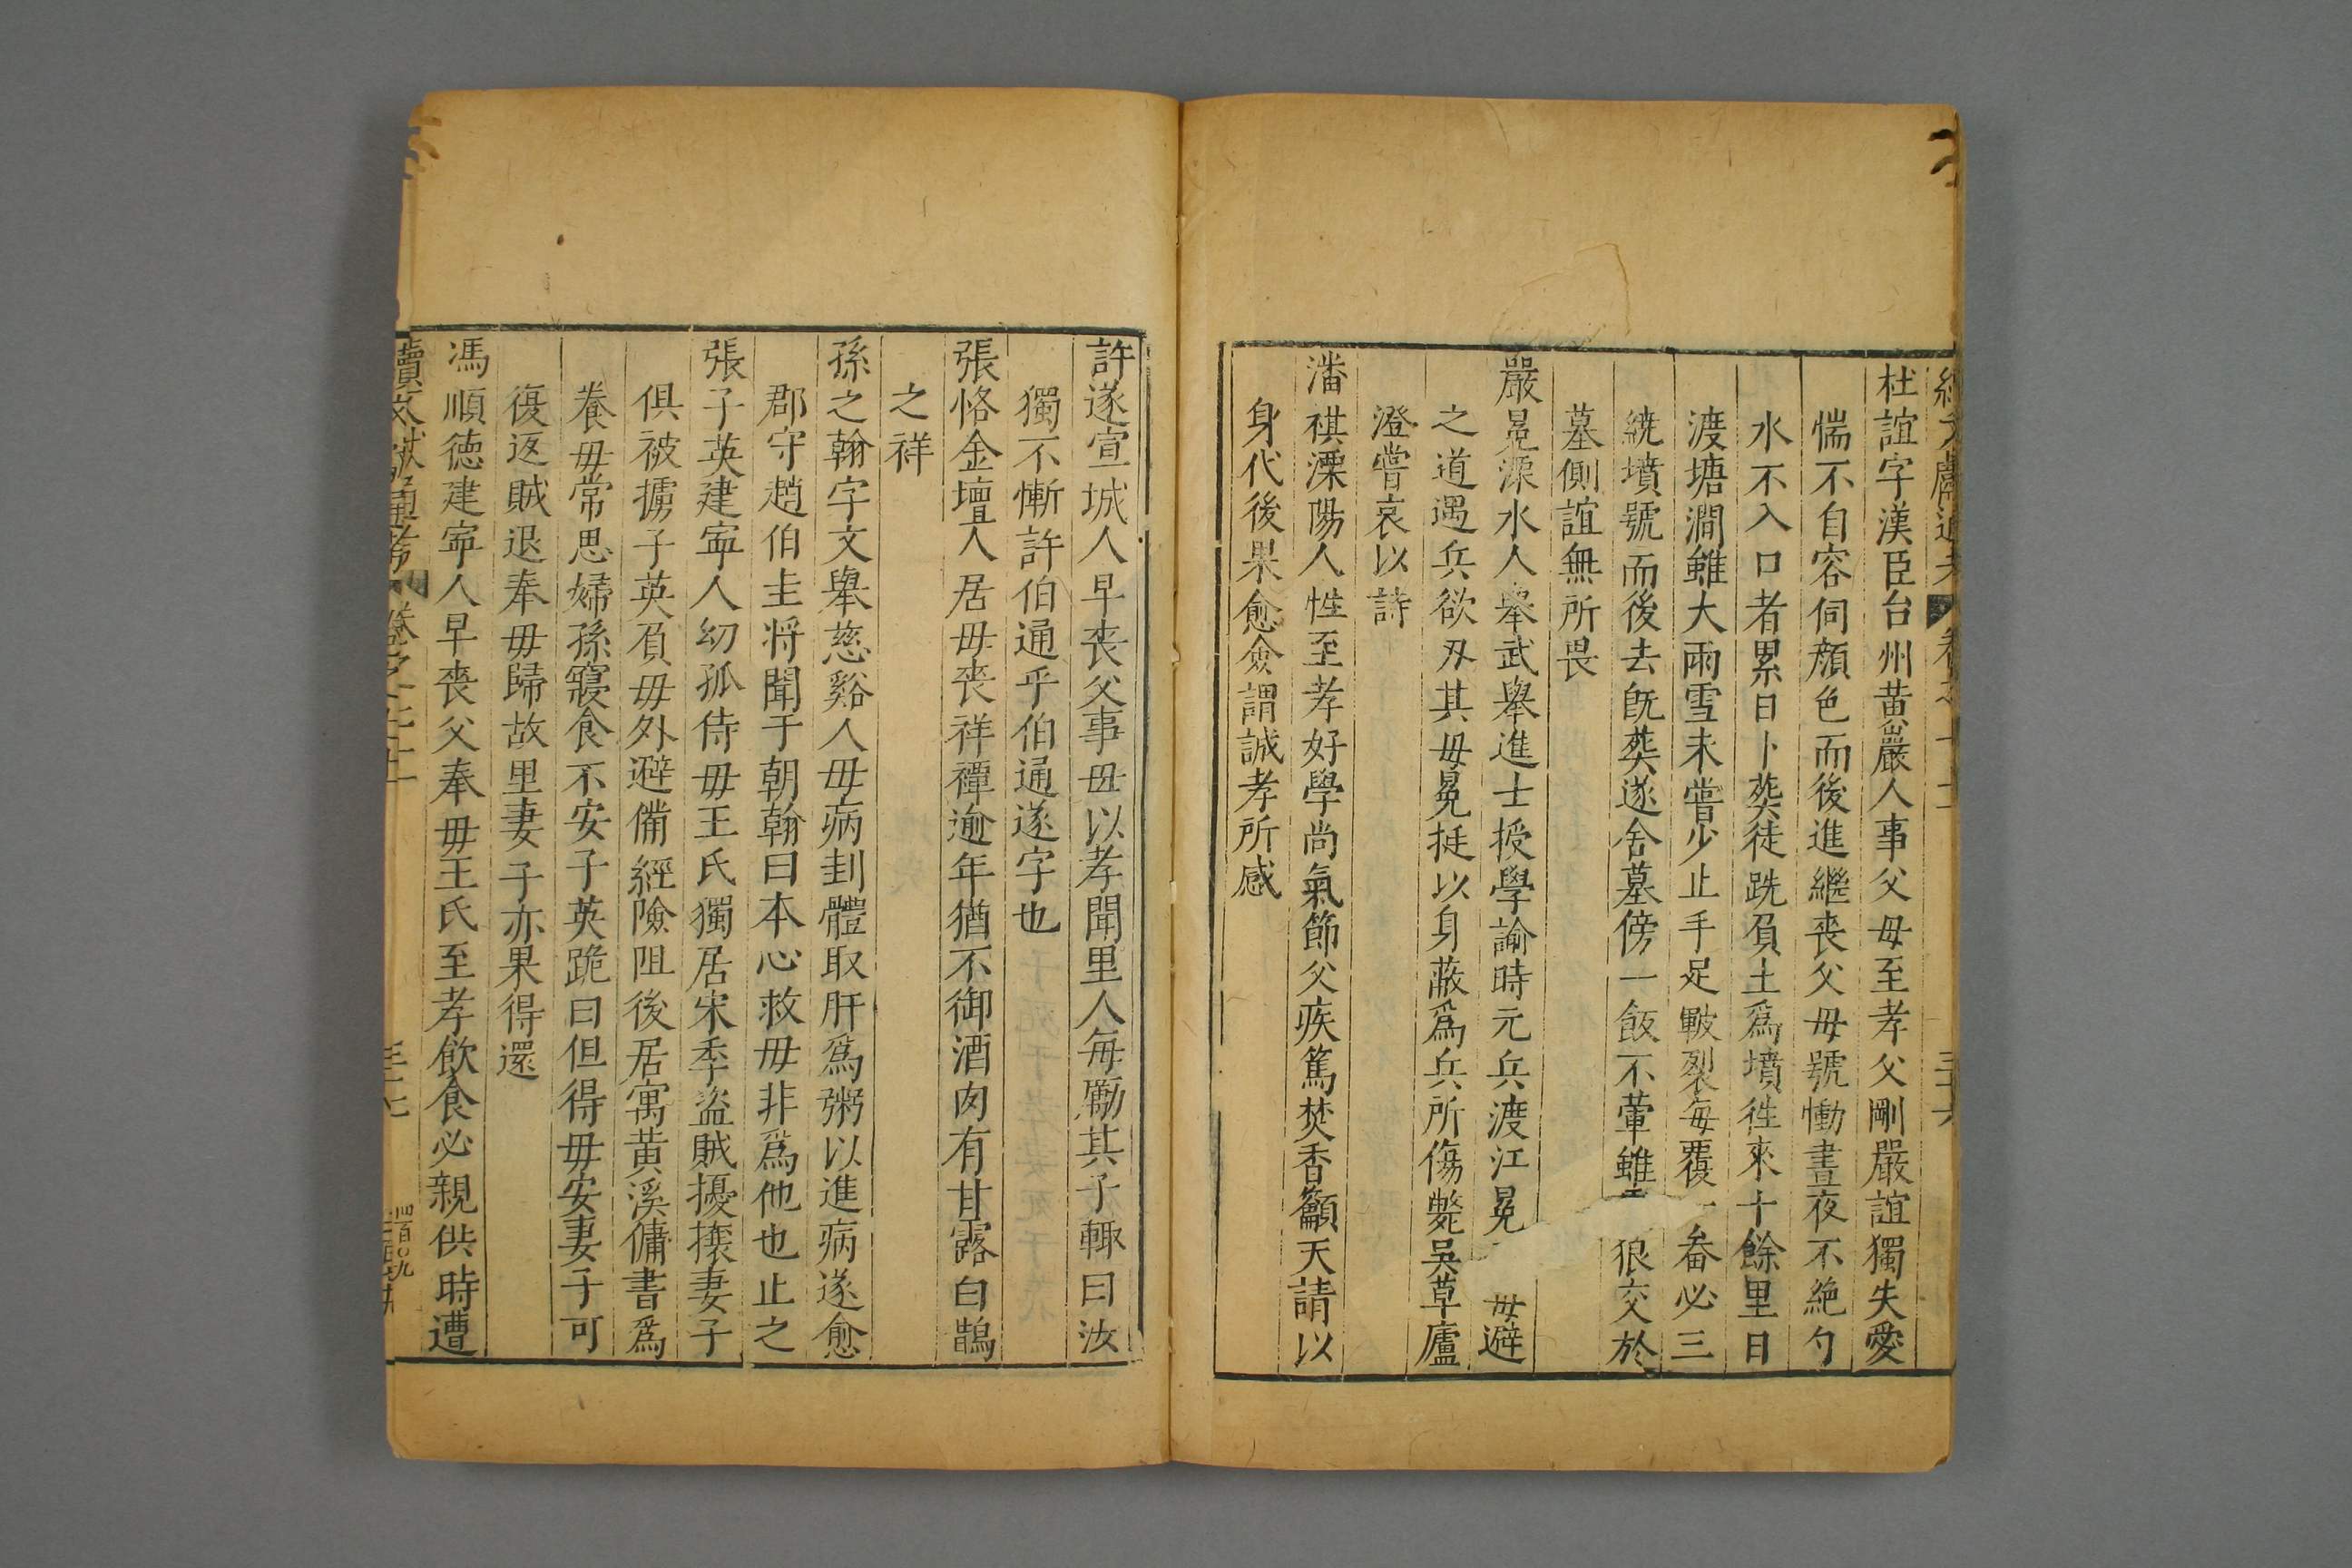 杜誼字漢臣台州黃巖人事父毋至孝父剛嚴誼獨失愛
惴不自容伺顏色而後進繼喪父毋號慟晝夜不絶勺
水不入口者累日卜葬徒跣負土爲墳徃來十餘里日
渡塘澗雖大雨雪未嘗少止手足皸裂每覆一畚必三
繞墳號而後去旣葬遂舍墓傍一飯不葷雖 狼交於
墓側誼無所畏
嚴冕溧水人舉武舉進士授學諭時元兵渡江冕 毋避
之道遇兵欲刄其毋冕挺以身蔽爲兵所傷斃吳草廬
澄嘗哀以詩
潘祺溧陽人性至孝好學尚氣節父疾篤焚香籲天請以
身代後果愈僉謂誠孝所感
許遂宣城人早丧父事毋以孝聞里人每勵其子輙曰汝
獨不慚許伯通乎伯通遂字也
張恪金壇人居毋喪祥禫逾年猶不御酒肉有甘露白鵲
之祥
孫之翰字文舉慈谿人毋病刲體取肝爲粥以進病遂愈
郡守趙伯圭將聞于朝翰曰本心救毋非爲他也止之
張子英建寧人幼孤侍毋王氏獨居宋季盗賊擾攘妻子
俱被擄子英負毋外避備經險阻後居寓黃溪傭書爲
養毋常思婦孫寢食不安子英跪曰但得毋安妻子可
復返賊退奉毋歸故里妻子亦果得還
馮順德建寧人早喪父奉毋王氏至孝飲食必親供時遭
續文獻通考 卷之七十一 三十七
四百〇九